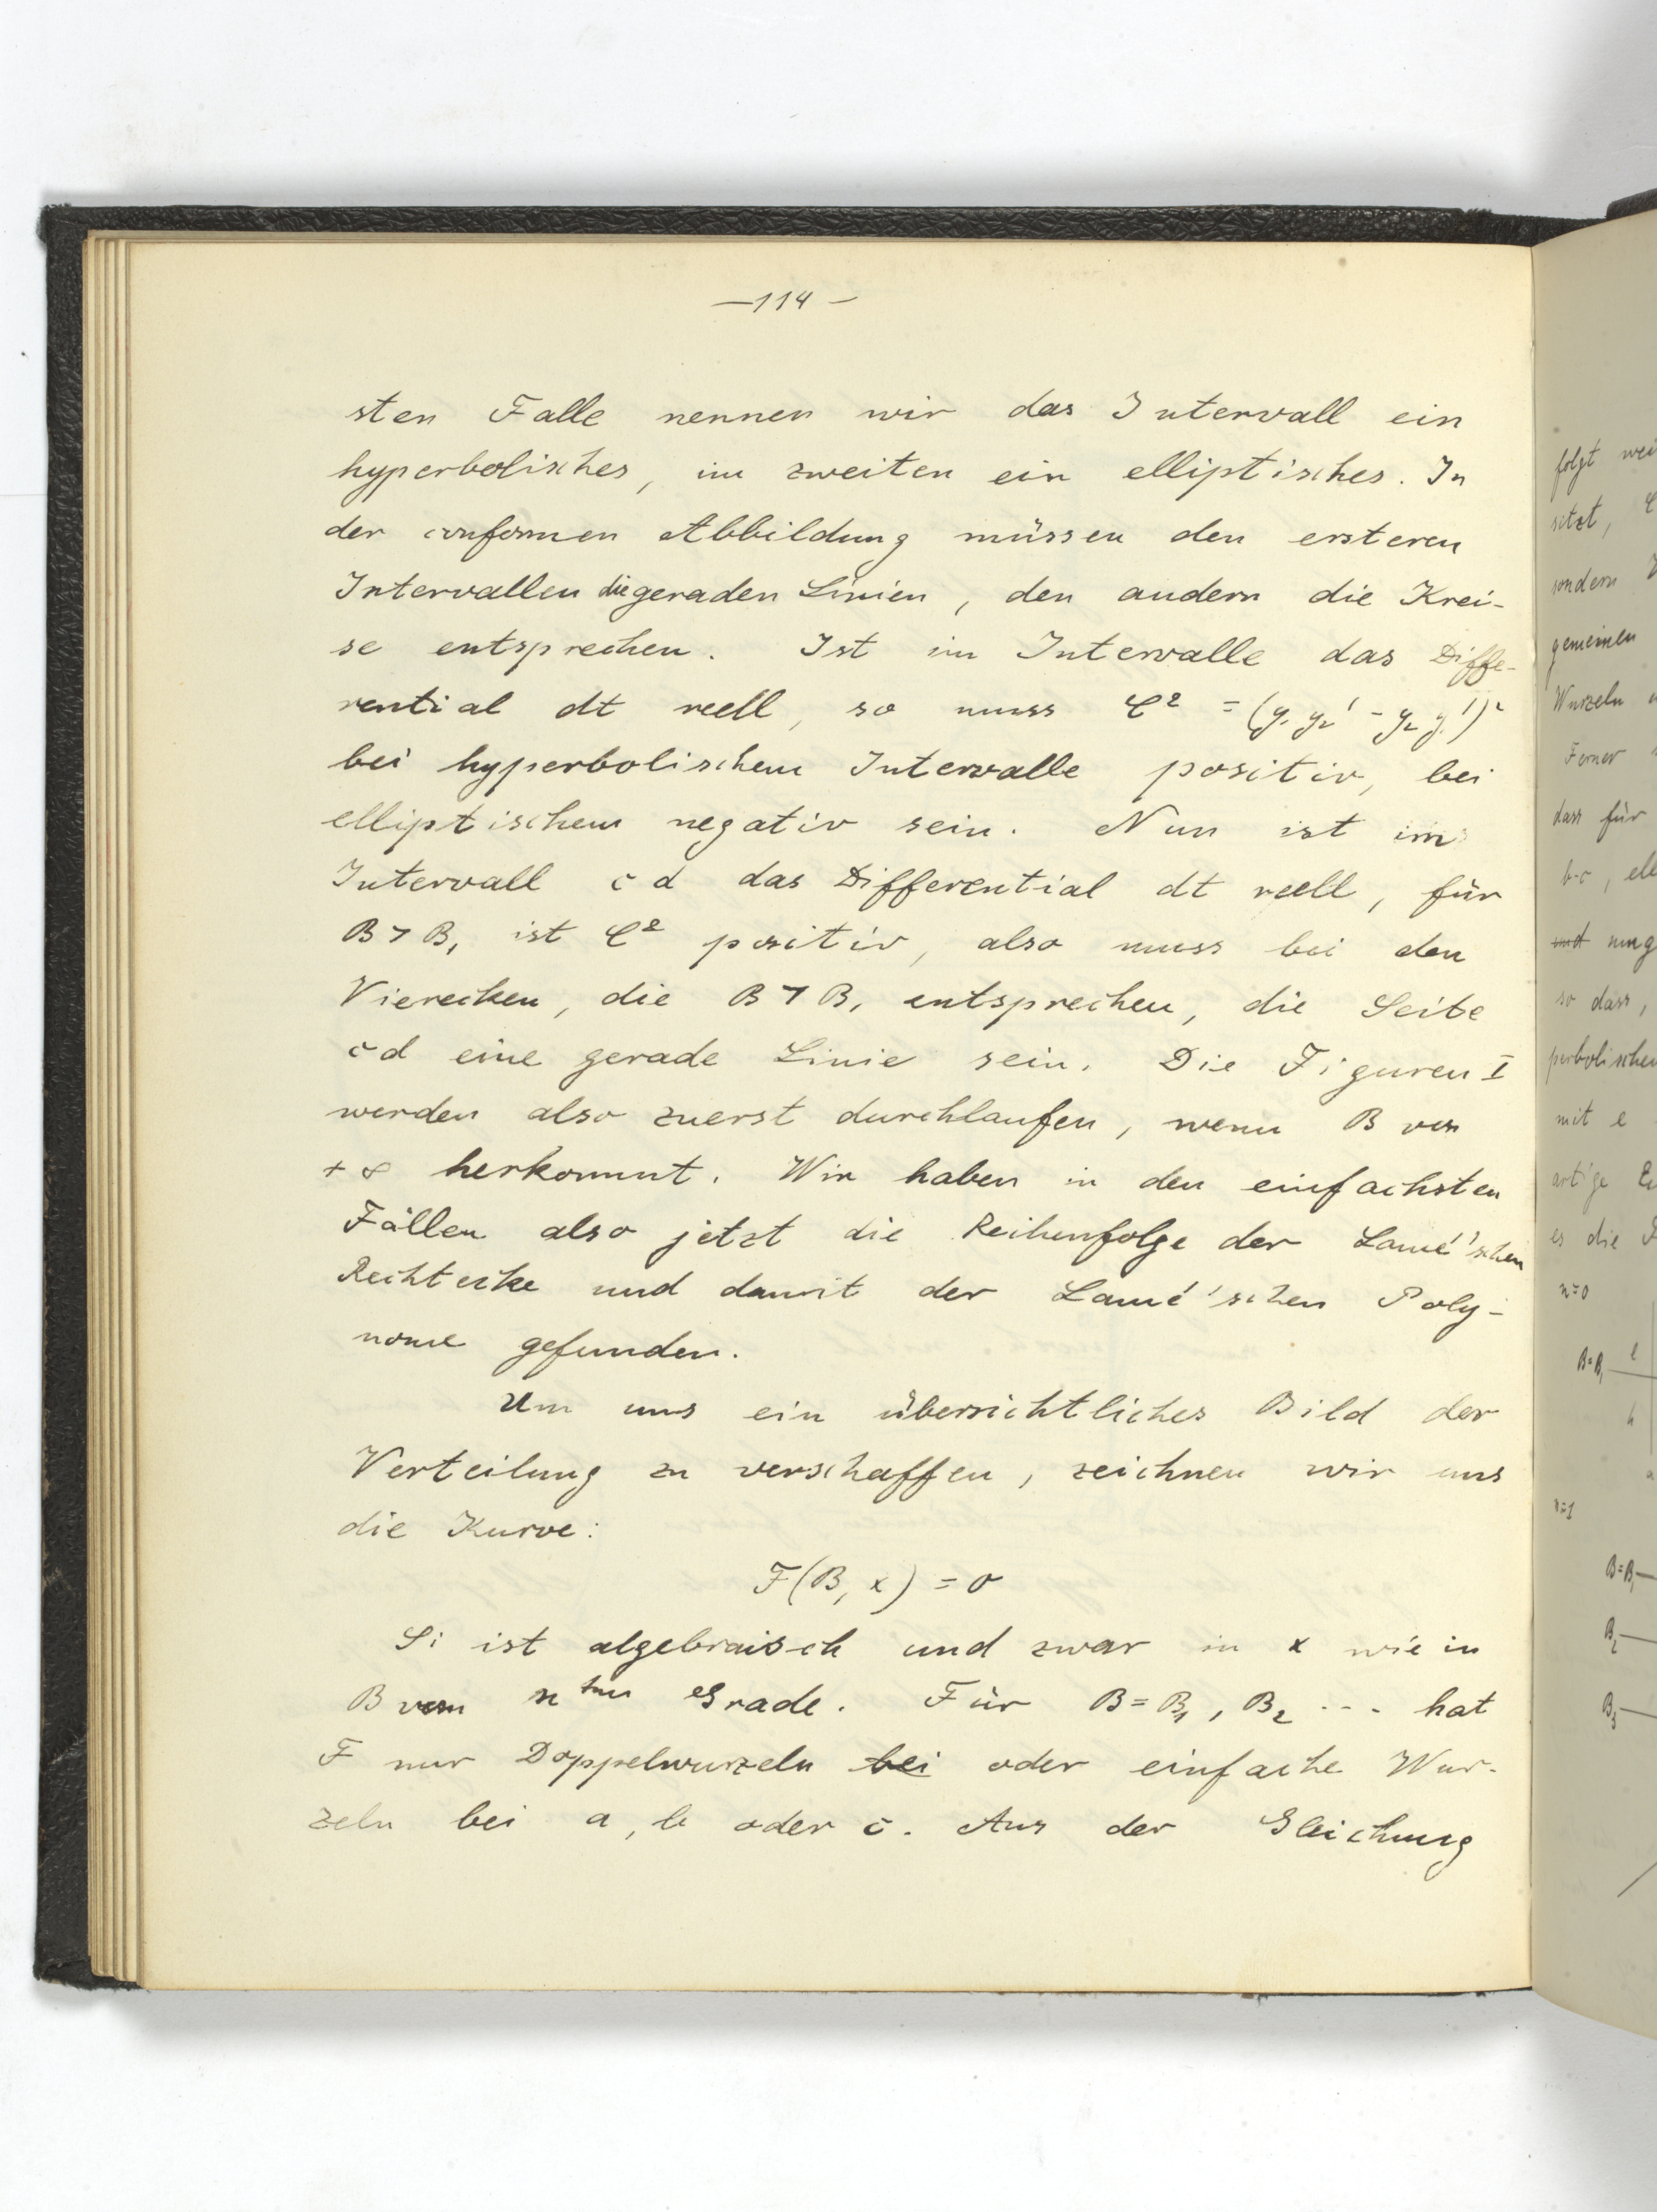 —114—
sten Falle nennen wir das Intervall ein
hyperbolisches, im zweiten ein elliptisches. In
der conformen Abbildung müssen den ersteren
Intervallen die geraden Linien, den andern die Krei-
se entsprechen. Ist im Intervalle das Diffe-
rential dt reell, so muss C² = (y₁ y₂' - y₂ y₁')²
bei hyperbolischem Intervalle positiv, bei
elliptischem negativ sein. Nun ist im
Intervall c d das Differential dt reell, für
B > B₁ ist C² positiv, also muss bei den
Vierecken, die B > B₁ entsprechen, die Seite
cd eine gerade Linie sein. Die Figuren I
werden also zuerst durchlaufen, wenn B von
+ ∞ herkommt. Wir haben in den einfachsten
Fällen also jetzt die Reihenfolge der Lamé'schen
Rechtecke und damit der Lamé'schen Poly-
nome gefunden.
Um uns ein übersichtliches Bild der
Verteilung zu verschaffen, zeichnen wir uns
die Kurve:
F(B, x) = 0
Si ist algebraisch und zwar in x wie in
B vom n ten Grade. Für B = B₁, B₂ --- hat
F nur Doppelwurzeln bei oder einfache Wur-
zeln bei a, b oder c. Aus der Gleichung
folgt wei
sitzt,
sondern
gemeinen
Wurzeln
Ferner
dass für
b-c, ele
und
so dass,
perbolischen
mit e
artige
es die
n=0
B=B₁ e
h
n=1
B=B₁
B₂
B₃